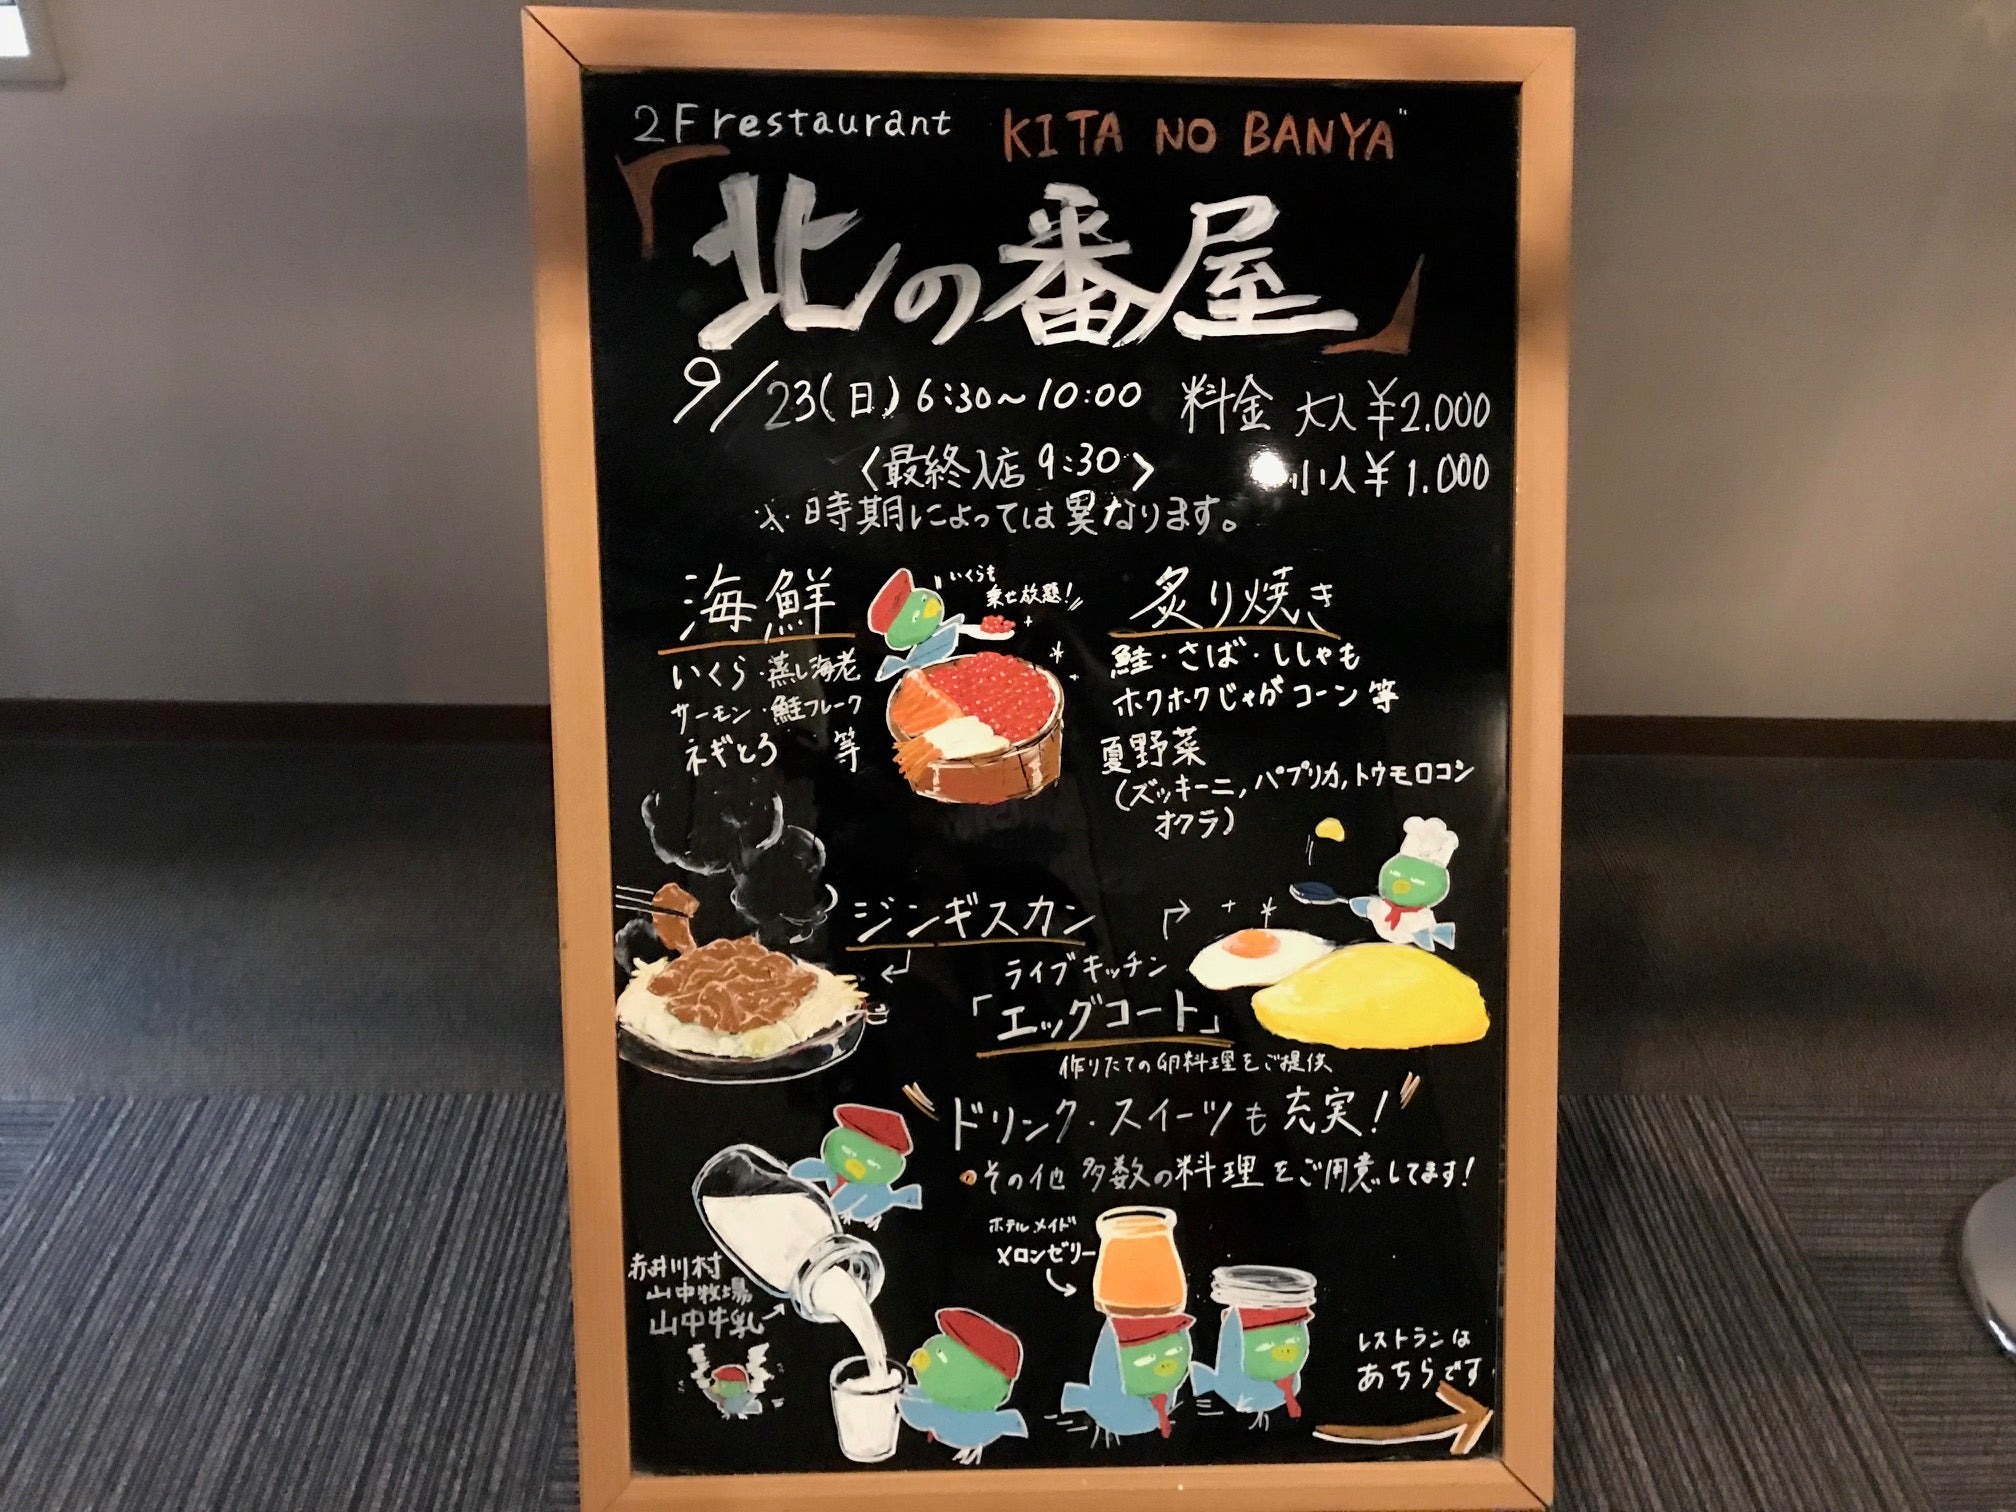 2F restaurant KITA NO BANYA"
「北の番屋」
9/23(日) 6:30～10:00 料金 大人￥2.000
〈最終入店 9:30〉 小人￥1.000
※時期によっては異なります。
海鮮
いくら・蒸し海老
サーモン・鮭フレーク
ネギとろ 等
"いくらも
乗せ放題!"
炙り焼き
鮭・さば・ししゃも
ホクホクじゃがコーン等
夏野菜
(ズッキーニ,パプリカ,トウモロコシ
オクラ)
ジンギスカン
ライブキッチン
「エッグコート」
作りたての卵料理をご提供
ドリンク・スイーツも充実!
その他 多数の料理をご用意してます!
赤井川村
山中牧場
山中牛乳
ホテルメイド
メロンゼリー
レストランは
あちらです